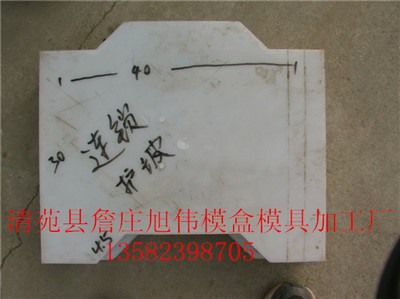 40
30
连锁
护坡
清苑县詹庄旭伟模盒模具加工厂
45
13582398705